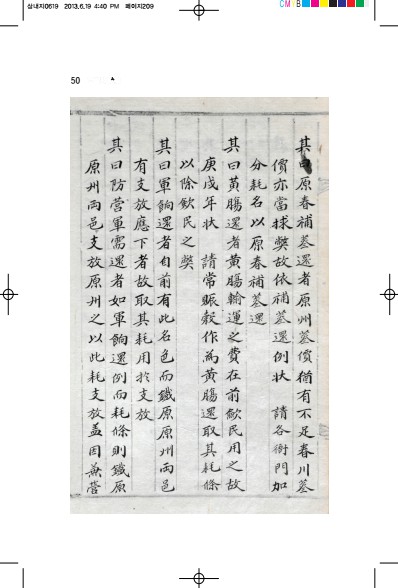 삼내지0619 2013.6.19 4:40 PM 페이지209
CMY
50
其曰原春補蔘還者原州蔘價猶有不足春川蔘
價亦當捄弊故依補蔘還例狀 請各衙門加
分耗名以原春補蔘還
其曰黃膓還者黃膓輸運之費在前歛民用之故
庚戌年狀 請常賑糓作爲黃膓還取其耗條
以除歛民之弊
其曰軍餉還者自前有此名色而鐵原原州兩邑
有支放應下者故取其耗用於支放
其曰防營軍需還者如軍餉還例而耗條則鐵原
原州兩邑支放原州之以此耗支放盖因兼營